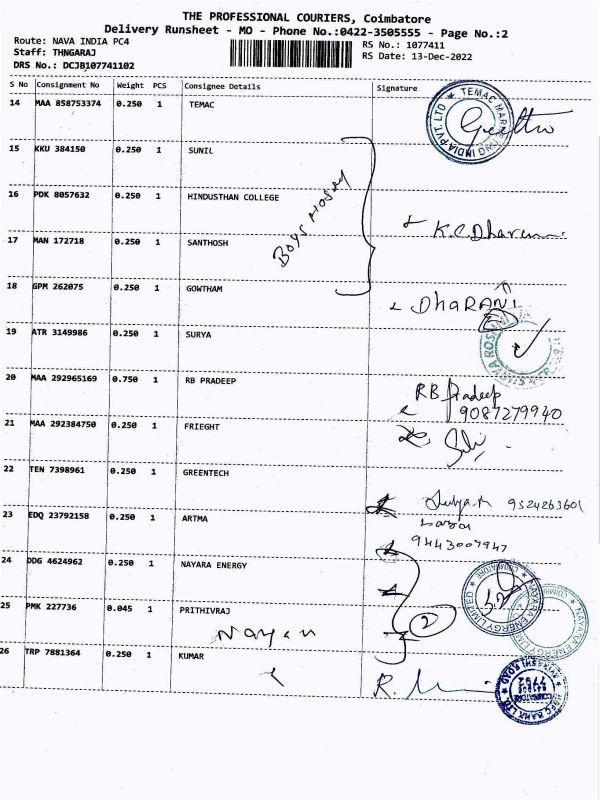 THE PROFESSIONAL COURIERS, Coimbatore
Delivery Runsheet - MO - Phone No.:0422-3505555 - Page No.:2
Route: NAVA INDIA PC4
RS No.: 1077411
Staff: THNGARAJ
RS Date: 13-Dec-2022
DRS No.: DCJB107741102
S No Consignment No Weight PCS Consignee Details Signature
14 MAA 858753374 0.250 1 TEMAC
TEMAC INDIA PVT. LTD
15 KKU 384150 0.250 1 SUNIL
16 PDK 8057632 0.250 1 HINDUSTHAN COLLEGE
Boys
K.C.
17 MAN 172718 0.250 1 SANTHOSH
18 GPM 262075 0.250 1 GOWTHAM
DhARANI
19 ATR 3149986 0.250 1 SURYA
20 MAA 292965169 0.750 1 RB PRADEEP
RB Pradeep
9087279940
21 MAA 292384750 0.250 1 FRIEGHT
22 TEN 7398961 0.250 1 GREENTECH
23 EDQ 23792158 0.250 1 ARTMA
9443009947
24 DDG 4624962 0.250 1 NAYARA ENERGY
NAYARA ENERGY LIMITED
COIMBATORE
25 PMK 227736 0.045 1 PRITHIVRAJ
2
26 TRP 7881364 0.250 1 KUMAR
R.